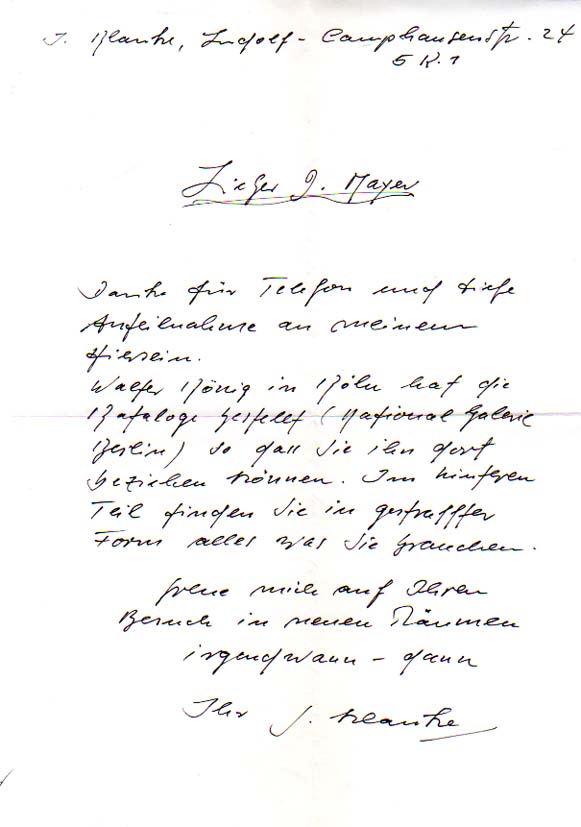 J. Klauke, Ludolf-Camphausenstr. 24
5 K. 1
Lieber J. Mayer
Danke für Telefon und tiefe
Anteilnahme an meinem
Hiersein.
Walter König in Köln hat die
Kataloge bestellt (National Galerie
Berlin) so daß Sie ihn dort
beziehen können. Im hinteren
Teil finden Sie in gestraffter
Form alles was Sie brauchen.
freue mich auf Ihren
Besuch in neuen Räumen
irgendwann - dann
Ihr J. Klauke